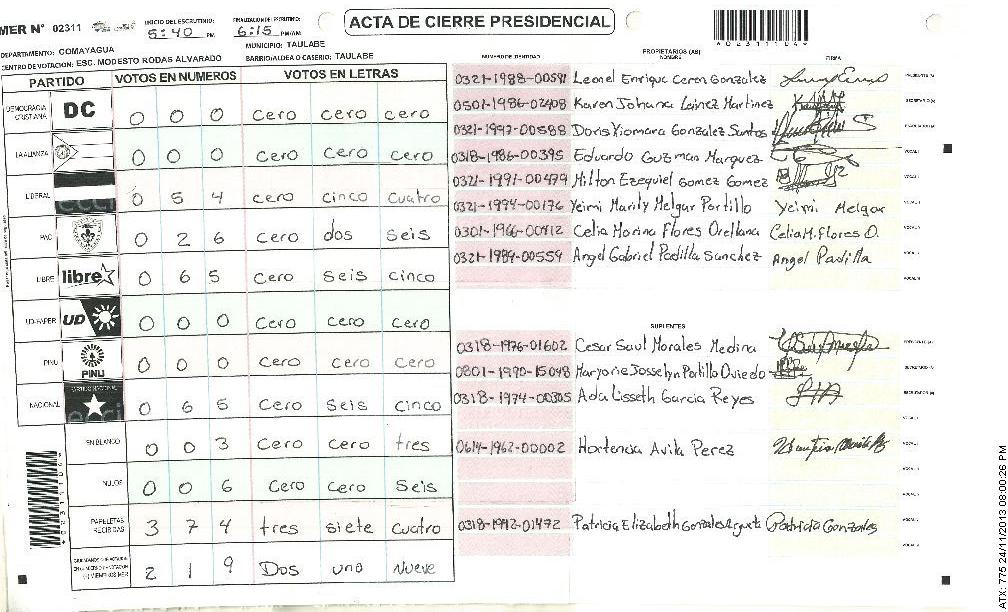 ACTA DE CIERRE PRESIDENCIAL
MER Nº 02311
INICIO DEL ESCRUTINIO: 5:40 PM
FINALIZACION ESCRUTINIO: 6:15 PM/AM
*02311104*
DEPARTAMENTO: COMAYAGUA
MUNICIPIO: TAULABE
CENTRO DE VOTACION: ESC. MODESTO RODAS ALVARADO
BARRIO/ALDEA O CASERIO: TAULABE
PARTIDO VOTOS EN NUMEROS VOTOS EN LETRAS
DEMOCRACIA CRISTIANA DC 0 0 0 cero cero cero
LA ALIANZA 0 0 0 cero cero cero
LIBERAL 0 5 4 cero cinco cuatro
PAC 0 2 6 cero dos seis
LIBRE libre 0 6 5 cero seis cinco
UD-FAPER UD 0 0 0 cero cero cero
PINU PINU 0 0 0 cero cero cero
NACIONAL PARTIDO NACIONAL 0 6 5 cero seis cinco
EN BLANCO 0 0 3 cero cero tres
NULOS 0 0 6 cero cero seis
PAPELETAS RECIBIDAS 3 7 4 tres siete cuatro
2 1 9 Dos uno Nueve
NUMERO DE IDENTIDAD PROPIETARIOS (AS) NOMBRE FIRMA
0321-1988-00591 Leonel Enrique Ceron Gonzalez PRESIDENTE (A)
0501-1986-02408 Karen Johana Leinez Martinez SECRETARIO (A)
0321-1997-00588 Doris Xiomara Gonzalez Santos ESCRUTADOR (A)
0318-1986-00395 Eduardo Guzman Marquez VOCAL I
0321-1991-00479 Milton Ezequiel Gomez Gomez
0321-1994-00176 Yeimi Marily Melgar Portillo Yeimi Melgar
0301-1966-00412 Celia Morina Flores Orellana Celia M. Flores O.
0321-1989-00559 Angel Gabriel Padilla Sanchez Angel Padilla
SUPLENTES
0318-1976-01602 Cesar Saul Morales Medina PRESIDENTE (A)
0801-1990-15048 Marjorie Josselyn Portillo Oviedo SECRETARIO (A)
0318-1974-00305 Ada Lisseth Garcia Reyes ESCRUTADOR (A)
0614-1962-00002 Hortencia Avila Perez
0318-1992-01472 Patricia Elizabeth Gonzales Patricia Gonzales
*02311104*
ATX: 775 24/11/2013 08:00:26 PM